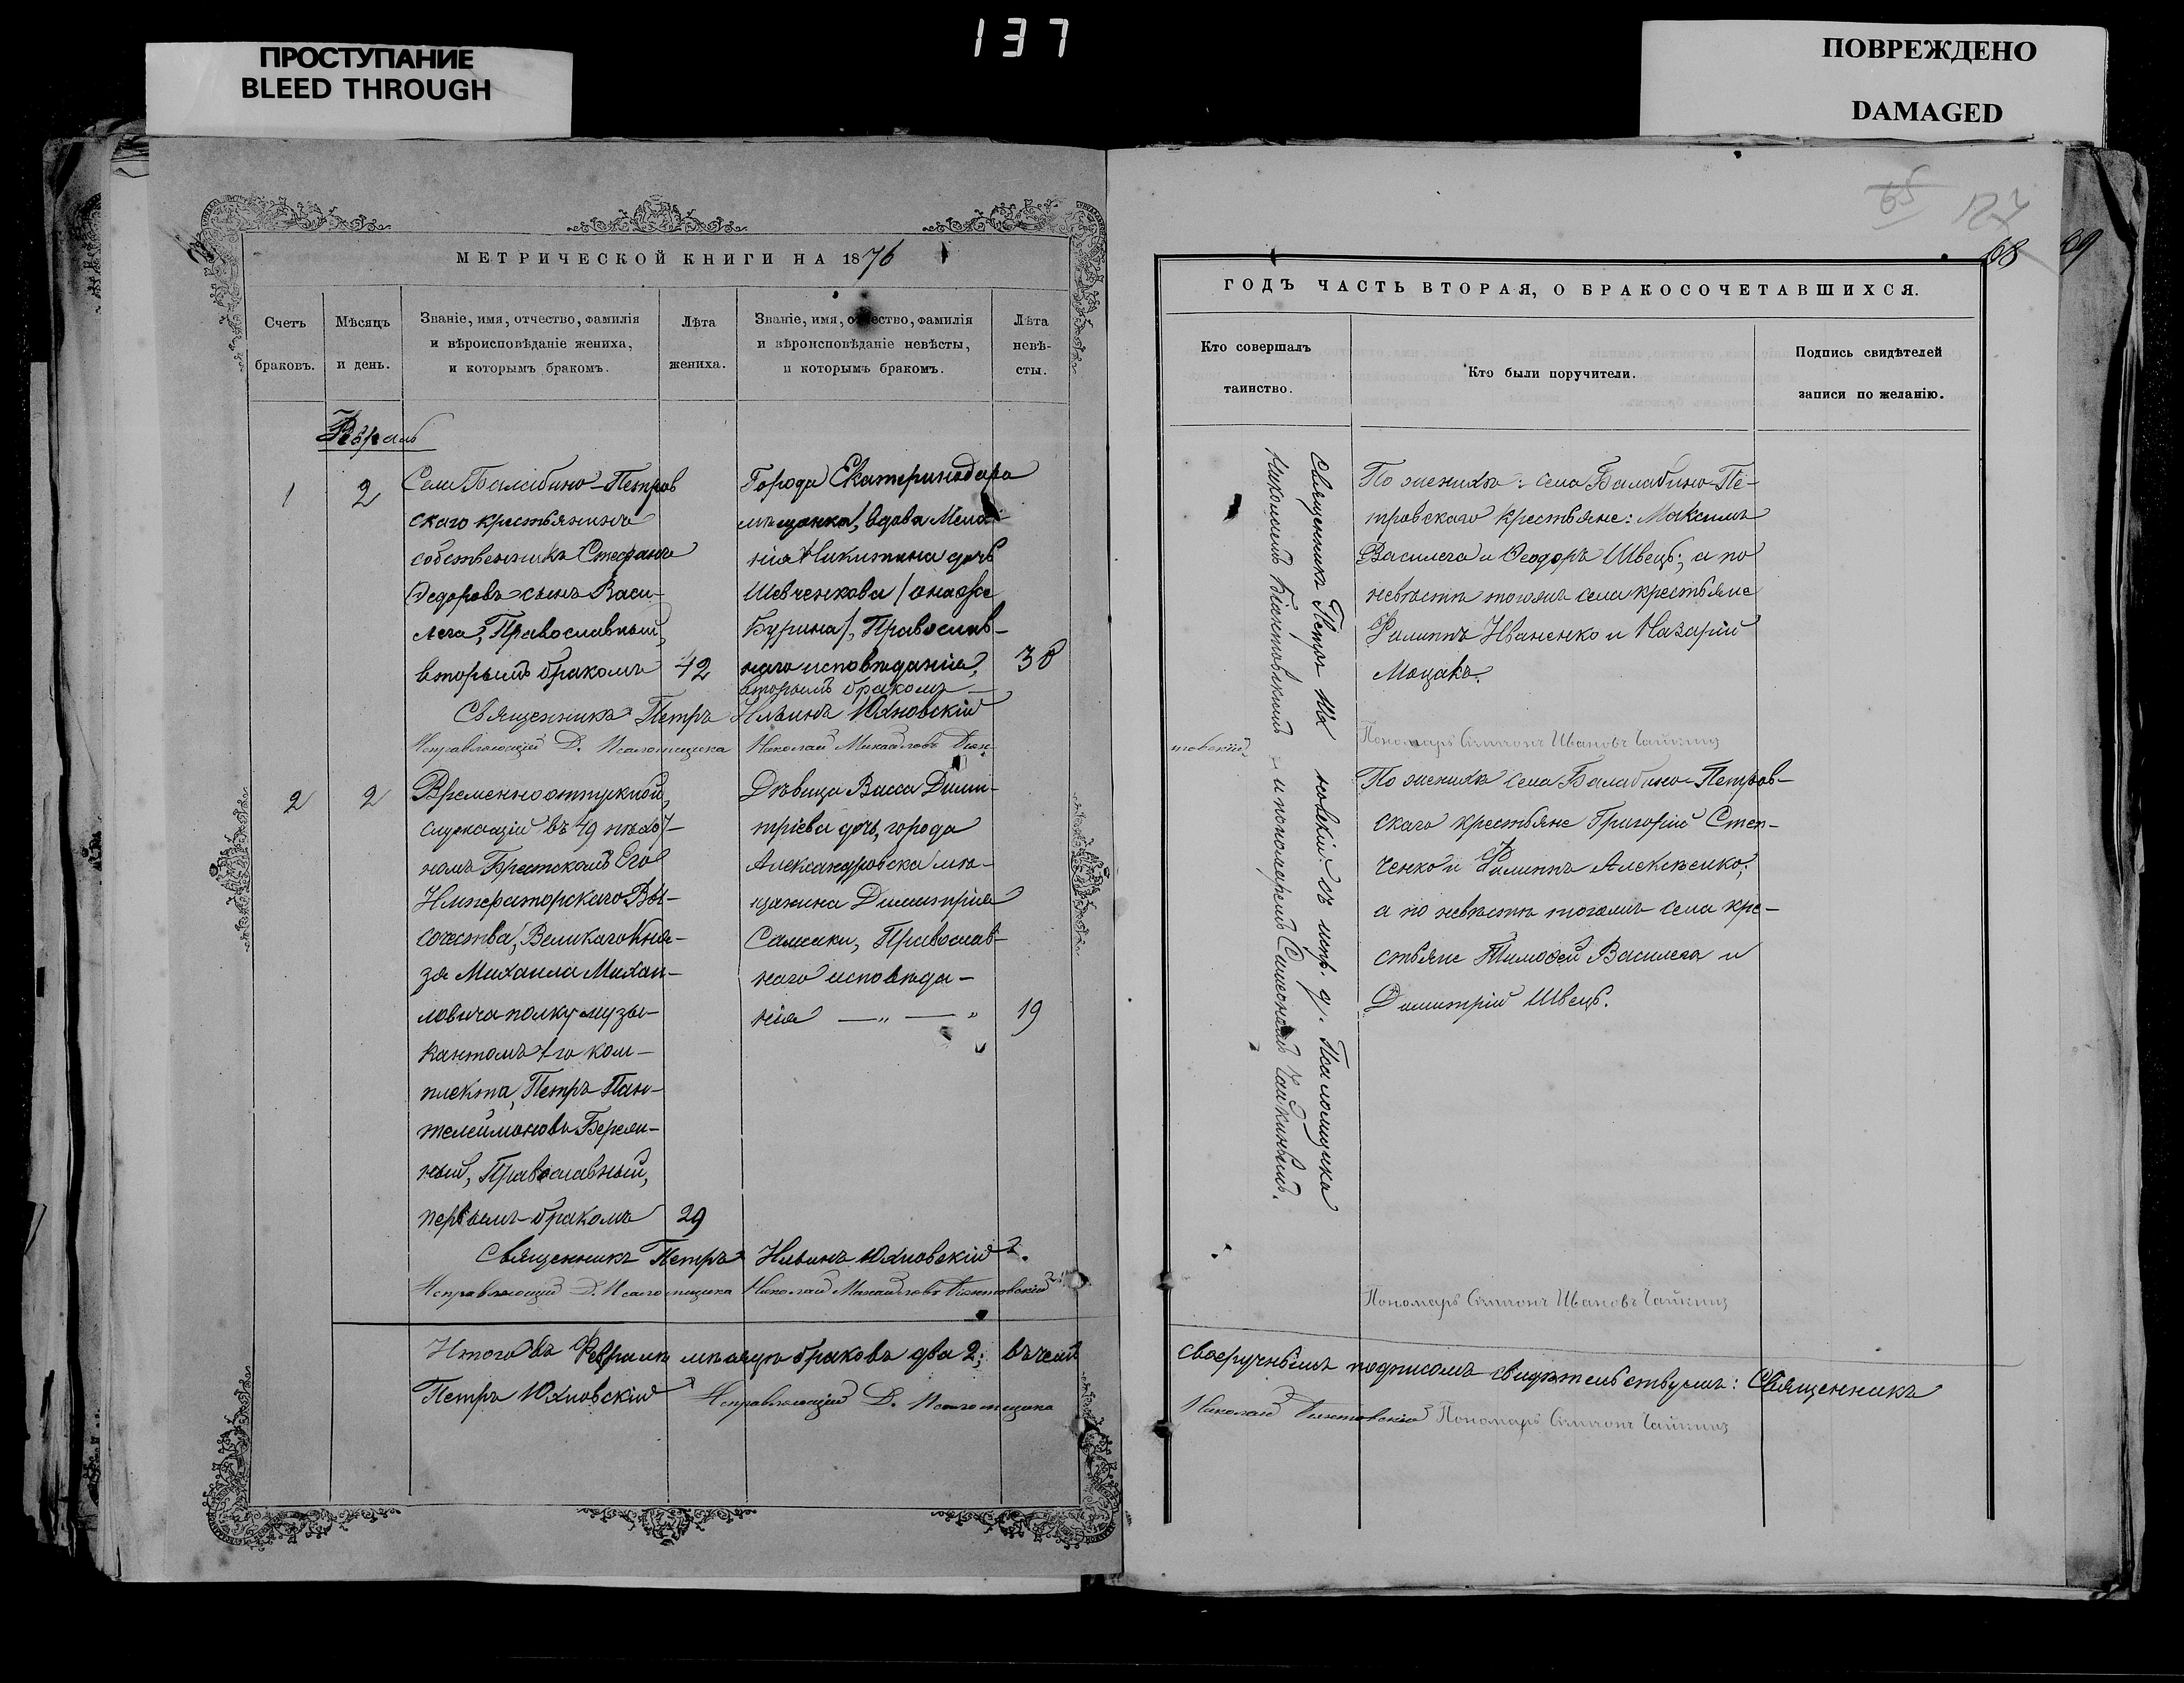 137
ПРОСТУПАНИЕ
BLEED THROUGH
ПОВРЕЖДЕНО
DAMAGED
МЕТРИЧЕСКОЙ КНИГИ НА 1876
Счетъ браковъ.
Мѣсяцъ и день.
Званіе, имя, отчество, фамилія
и вѣроисповѣданіе жениха,
и которымъ бракомъ.
Лѣта жениха.
Званіе, имя, отчество, фамилія
и вѣроисповѣданіе невѣсты,
и которымъ бракомъ.
Лѣта невѣ-
сты.
Февраль
1
2
Села Балабино-Петров
скаго крестьянинъ
собственникъ Стефанъ
Ѳедоровъ сынъ Васи-
лега, Православный,
вторымъ бракомъ
42
Города Екатеринодара
мѣщанка, вдова Мела-
нія Никитина дочь
Шевченкова /она же
Бурина/, Православ-
наго исповѣданія,
вторымъ бракомъ
38
Священникъ Петръ Ильинъ Юхновскій
Исправляющій Д. Псаломщика Николай Михайловъ Біен-
товскій
2
2
Временноотпускной,
служащій въ 79 пѣхот-
номъ Брестскомъ Его
Императорскаго Вы-
сочества, Великаго Кня-
зя Михаила Михаи-
ловича полку музы-
кантомъ 1го ком-
плекта, Петръ Пан-
телеимоновъ Береж-
ный, Православный,
первымъ бракомъ
29
Дѣвица Васса Дими-
тріева дочь, города
Александровска мѣ-
щанина Димитрія
Самсики, Православ-
наго исповѣда-
нія — „ — „
19
Священникъ Петръ Ильинъ Юхновскій
Исправляющій Д. Псаломщика Николай Михайловъ Біентовскій
Итого въ Февралѣ мѣсяцѣ браковъ два 2; въ чемъ
Петръ Юхновскій Исправляющій Д. Псаломщика
65
127
68
69
ГОДЪ ЧАСТЬ ВТОРАЯ, О БРАКОСОЧЕТАВШИХСЯ.
Кто совершалъ
таинство.
Кто были поручители.
Подпись свидѣтелей
записи по желанію.
Священникъ Петръ Юхновскій съ испр. д. Псаломщика
Николаемъ Біентовскимъ и пономаремъ Симеономъ Чайкинымъ.
По женихѣ: села Балабино-Пе-
тровскаго крестьяне: Максимъ
Василега и Ѳеодоръ Швецъ; а по
невѣстѣ тогожъ села крестьяне
Филиппъ Иваненко и Назарій
Моцакъ.
Пономарь Симеонъ Ивановъ Чайкинъ
По женихѣ села Балабино-Петров-
скаго крестьяне Григорій Степ-
ченко и Филиппъ Алексѣенко;
а по невѣстѣ тогожъ села кре-
стьяне Тимоѳей Василега и
Димитрій Швецъ.
Пономарь Симеонъ Ивановъ Чайкинъ
своеручнымъ подписомъ свидѣтельствуемъ: Священникъ
Николай Біентовскій Пономарь Симеонъ Чайкинъ